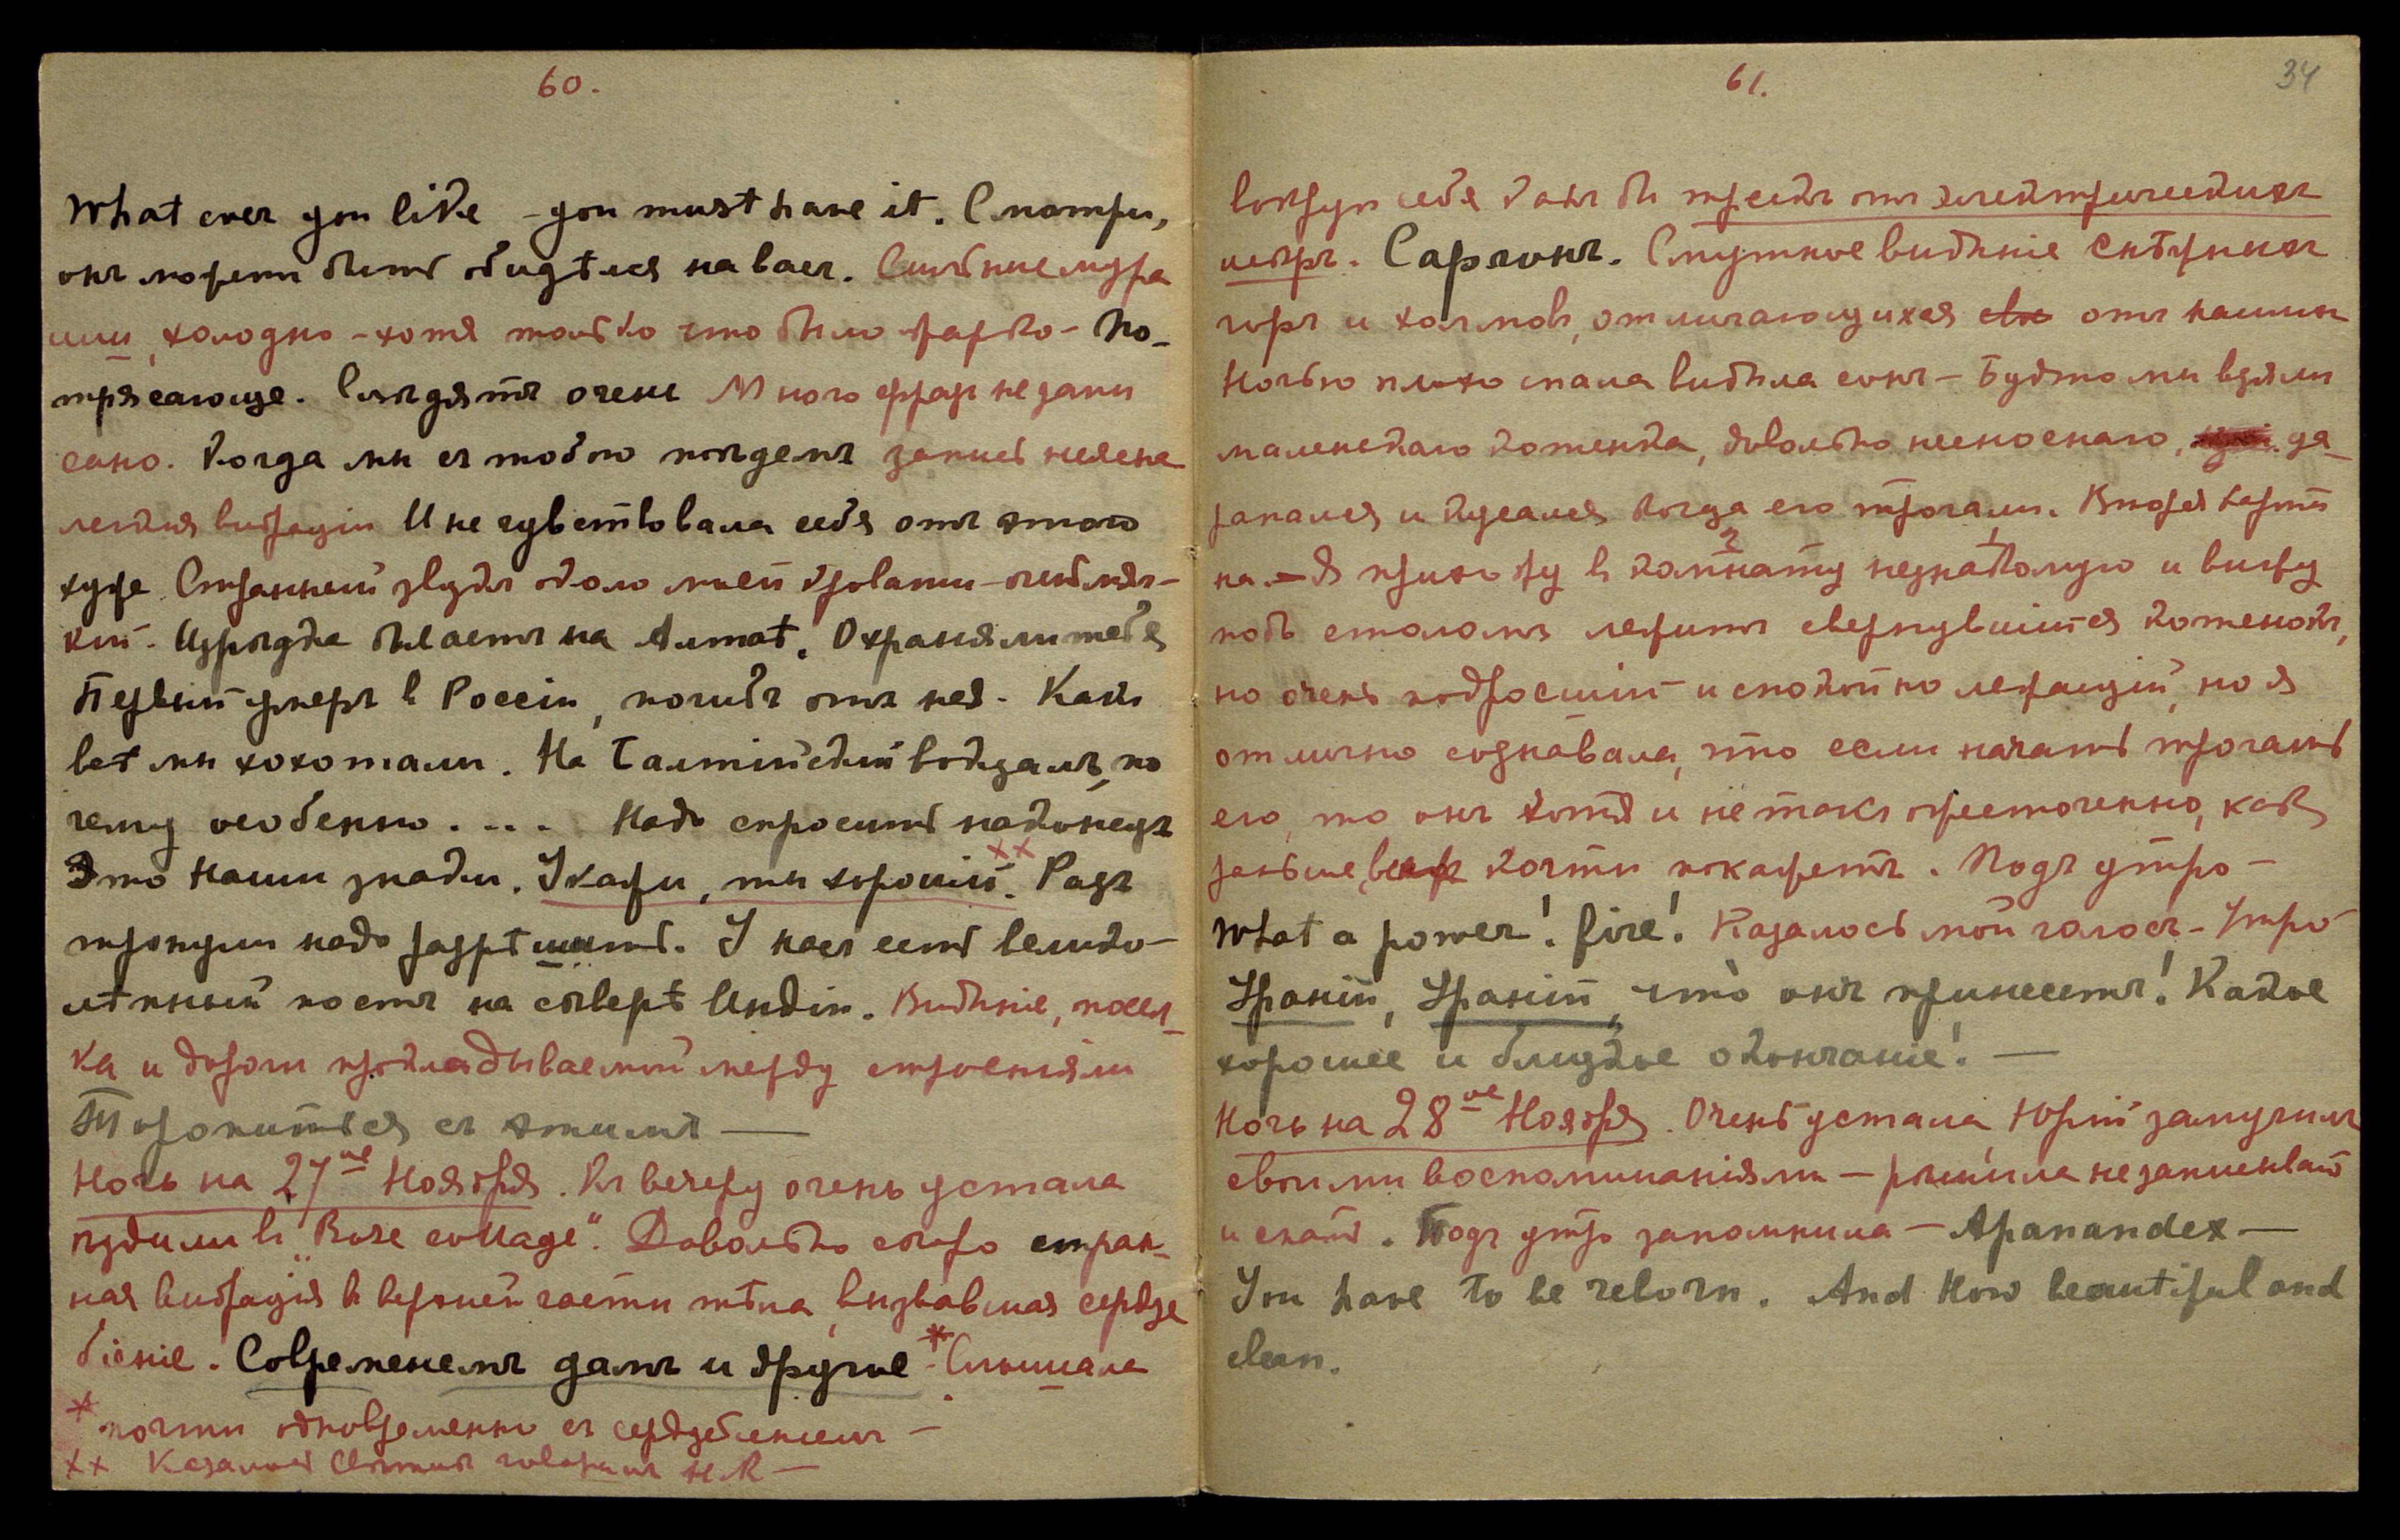 60.
What ever you like - you must have it. Смотри,
онъ можетъ быть обидѣлся на васъ. Сильные мура
шки, холодно - хотя только что было жарко - По-
трясающе. Слѣдятъ очень Много фраз не запи
сано. Когда мы съ тобою поѣдемъ запись неясна
легкая вибрація И не чувствовала себя отъ этого
хуже Странный звукъ около моей кровати - очень мяг-
кій. Изрѣдка бываетъ на Алтаѣ. Охраняли тебя
Первый умеръ в Россіи, погибъ отъ нея - Какъ
всѣ мы хохотали. На Балтійскій вокзалъ, по
чему особенно . . . . Надо спросить наконецъ
Это наши знаки. Укажи, ты хорошій. ×× Разъ
тронули надо разрѣшить. У насъ есть велико-
лѣпный постъ на сѣверѣ Индіи. Видѣніе, посел-
ка и дороги прокладываемой между строеніями
Торопиться съ этимъ —
Ночь на 27ое Ноября. Къ вечеру очень устала
ѣздили въ „Rose cottage“. Довольно скоро стран-
ная вибрація въ верхней части тѣла, вызвавшая сердце
біеніе. Современемъ дамъ и другіе * - Слышала
* почти одновременно съ сердцебіеніемъ —
×× Казалось Святил говорилъ Н.К —
61.
34
вокругъ себя какъ бы трескъ отъ электрическихъ
искръ. Саргонъ. Смутное видѣніе снѣжныхъ
горъ и холмовъ, отличающихся отъ нашихъ
Ночью плохо спала видѣла сонъ - Будто мы взяли
маленькаго котенка, довольно несноснаго, ца-
рапался и кусался когда его трогали. Вторая карти
на - Я прихожу въ комнату незнакомую и вижу
подъ столомъ лежитъ свернувшійся котенокъ,
но очень подросшій и спокойно лежащій, но я
отлично сознавала, что если начать трогать
его, то онъ хотя и не такъ ожесточенно, какъ
раньше, когти покажетъ. Подъ утро -
What a power! fire! Казалось мой голосъ - Утро
Ураній, Ураній, что онъ принесетъ! Какое
хорошее и близкое окончаніе! —
Ночь на 28ое Ноября. Очень устала Юрій замучилъ
своими воспоминаніями — рѣшила не записывать
и спать. Подъ утро запомнила — Apanandex —
You have to be reborn. And How beautiful and
clean.